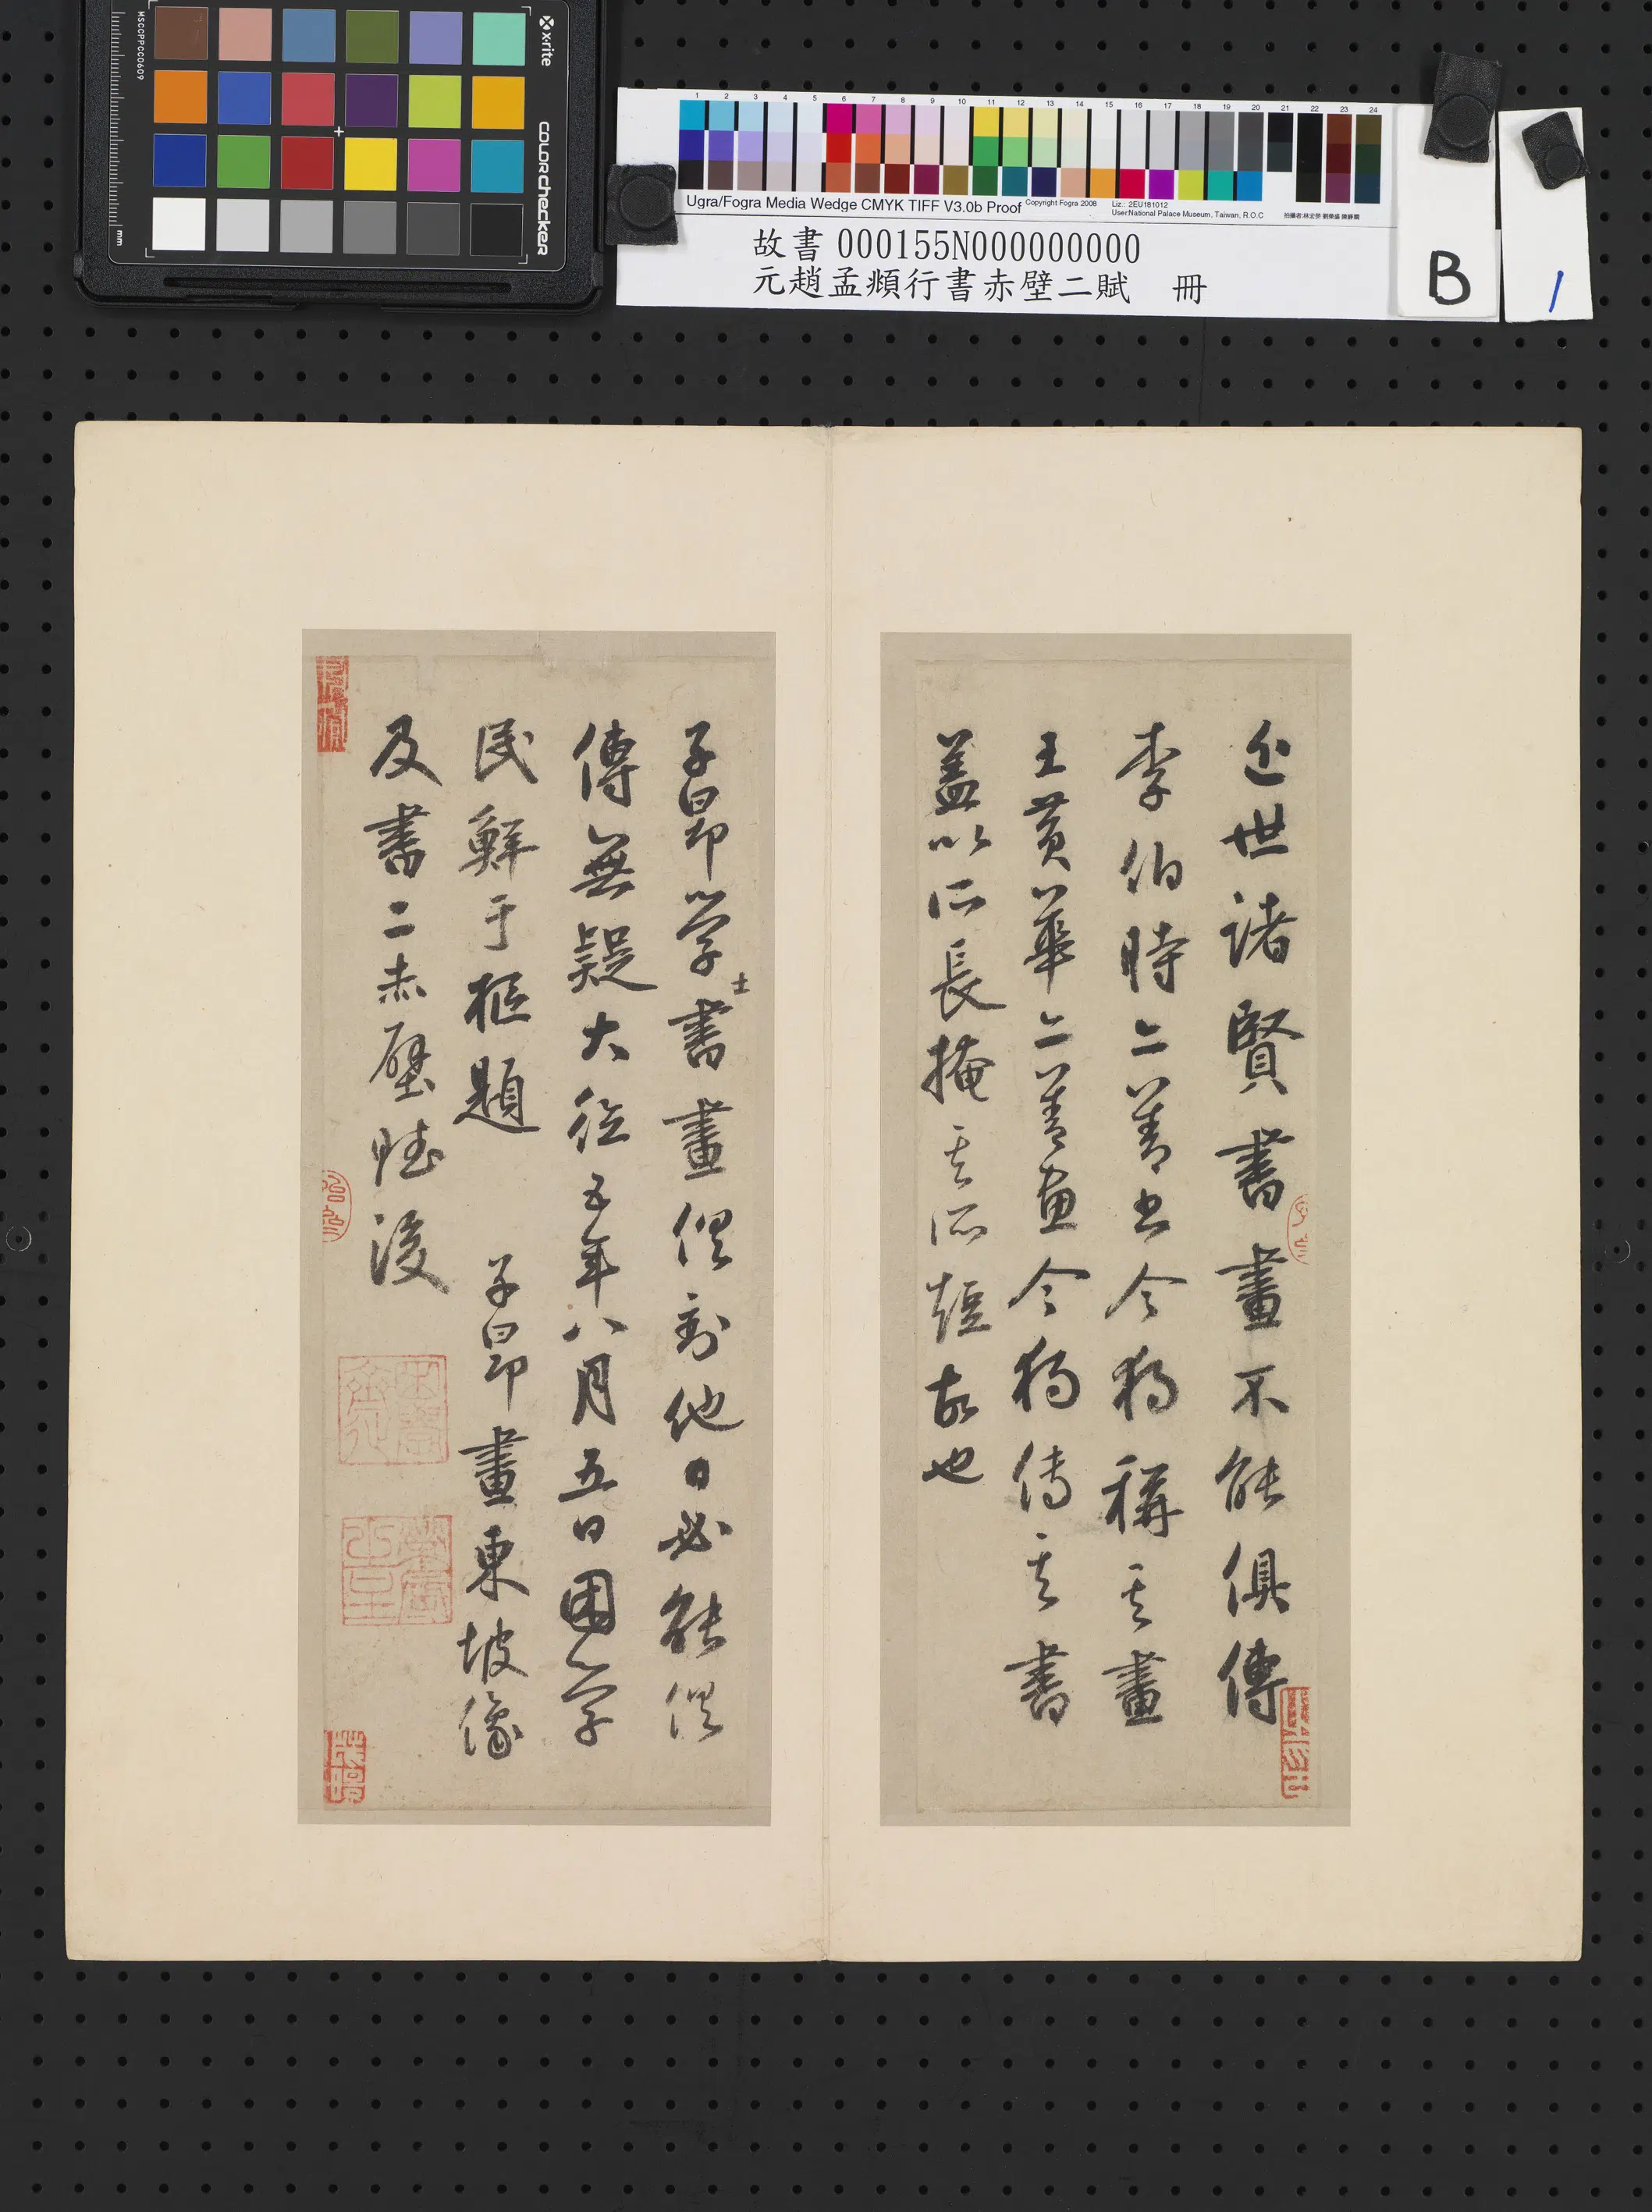 MSCCPPCC0609
x·rite
colorchecker
mm
1 2 3 4 5 6 7 8 9 10 11 12 13 14 15 16 17 18 19 20 21 22 23 24
Ugra/Fogra Media Wedge CMYK TIFF V3.0b Proof Copyright Fogra 2008 Liz.: 2EU181012
User:National Palace Museum, Taiwan, R.O.C
故書 000155N000000000
元趙孟頫行書赤壁二賦 冊
B
1
近世諸賢書畫不能俱傳
李伯時亦善书今獨稱其畫
王黃華亦善畫今獨傳其書
蓋以所長掩其所短故也
子昂學士書畫俱到他日必能俱
傳無疑大德五年八月五日困學
民鮮于樞題 子昂畫東坡像
及書二赤壁賦後